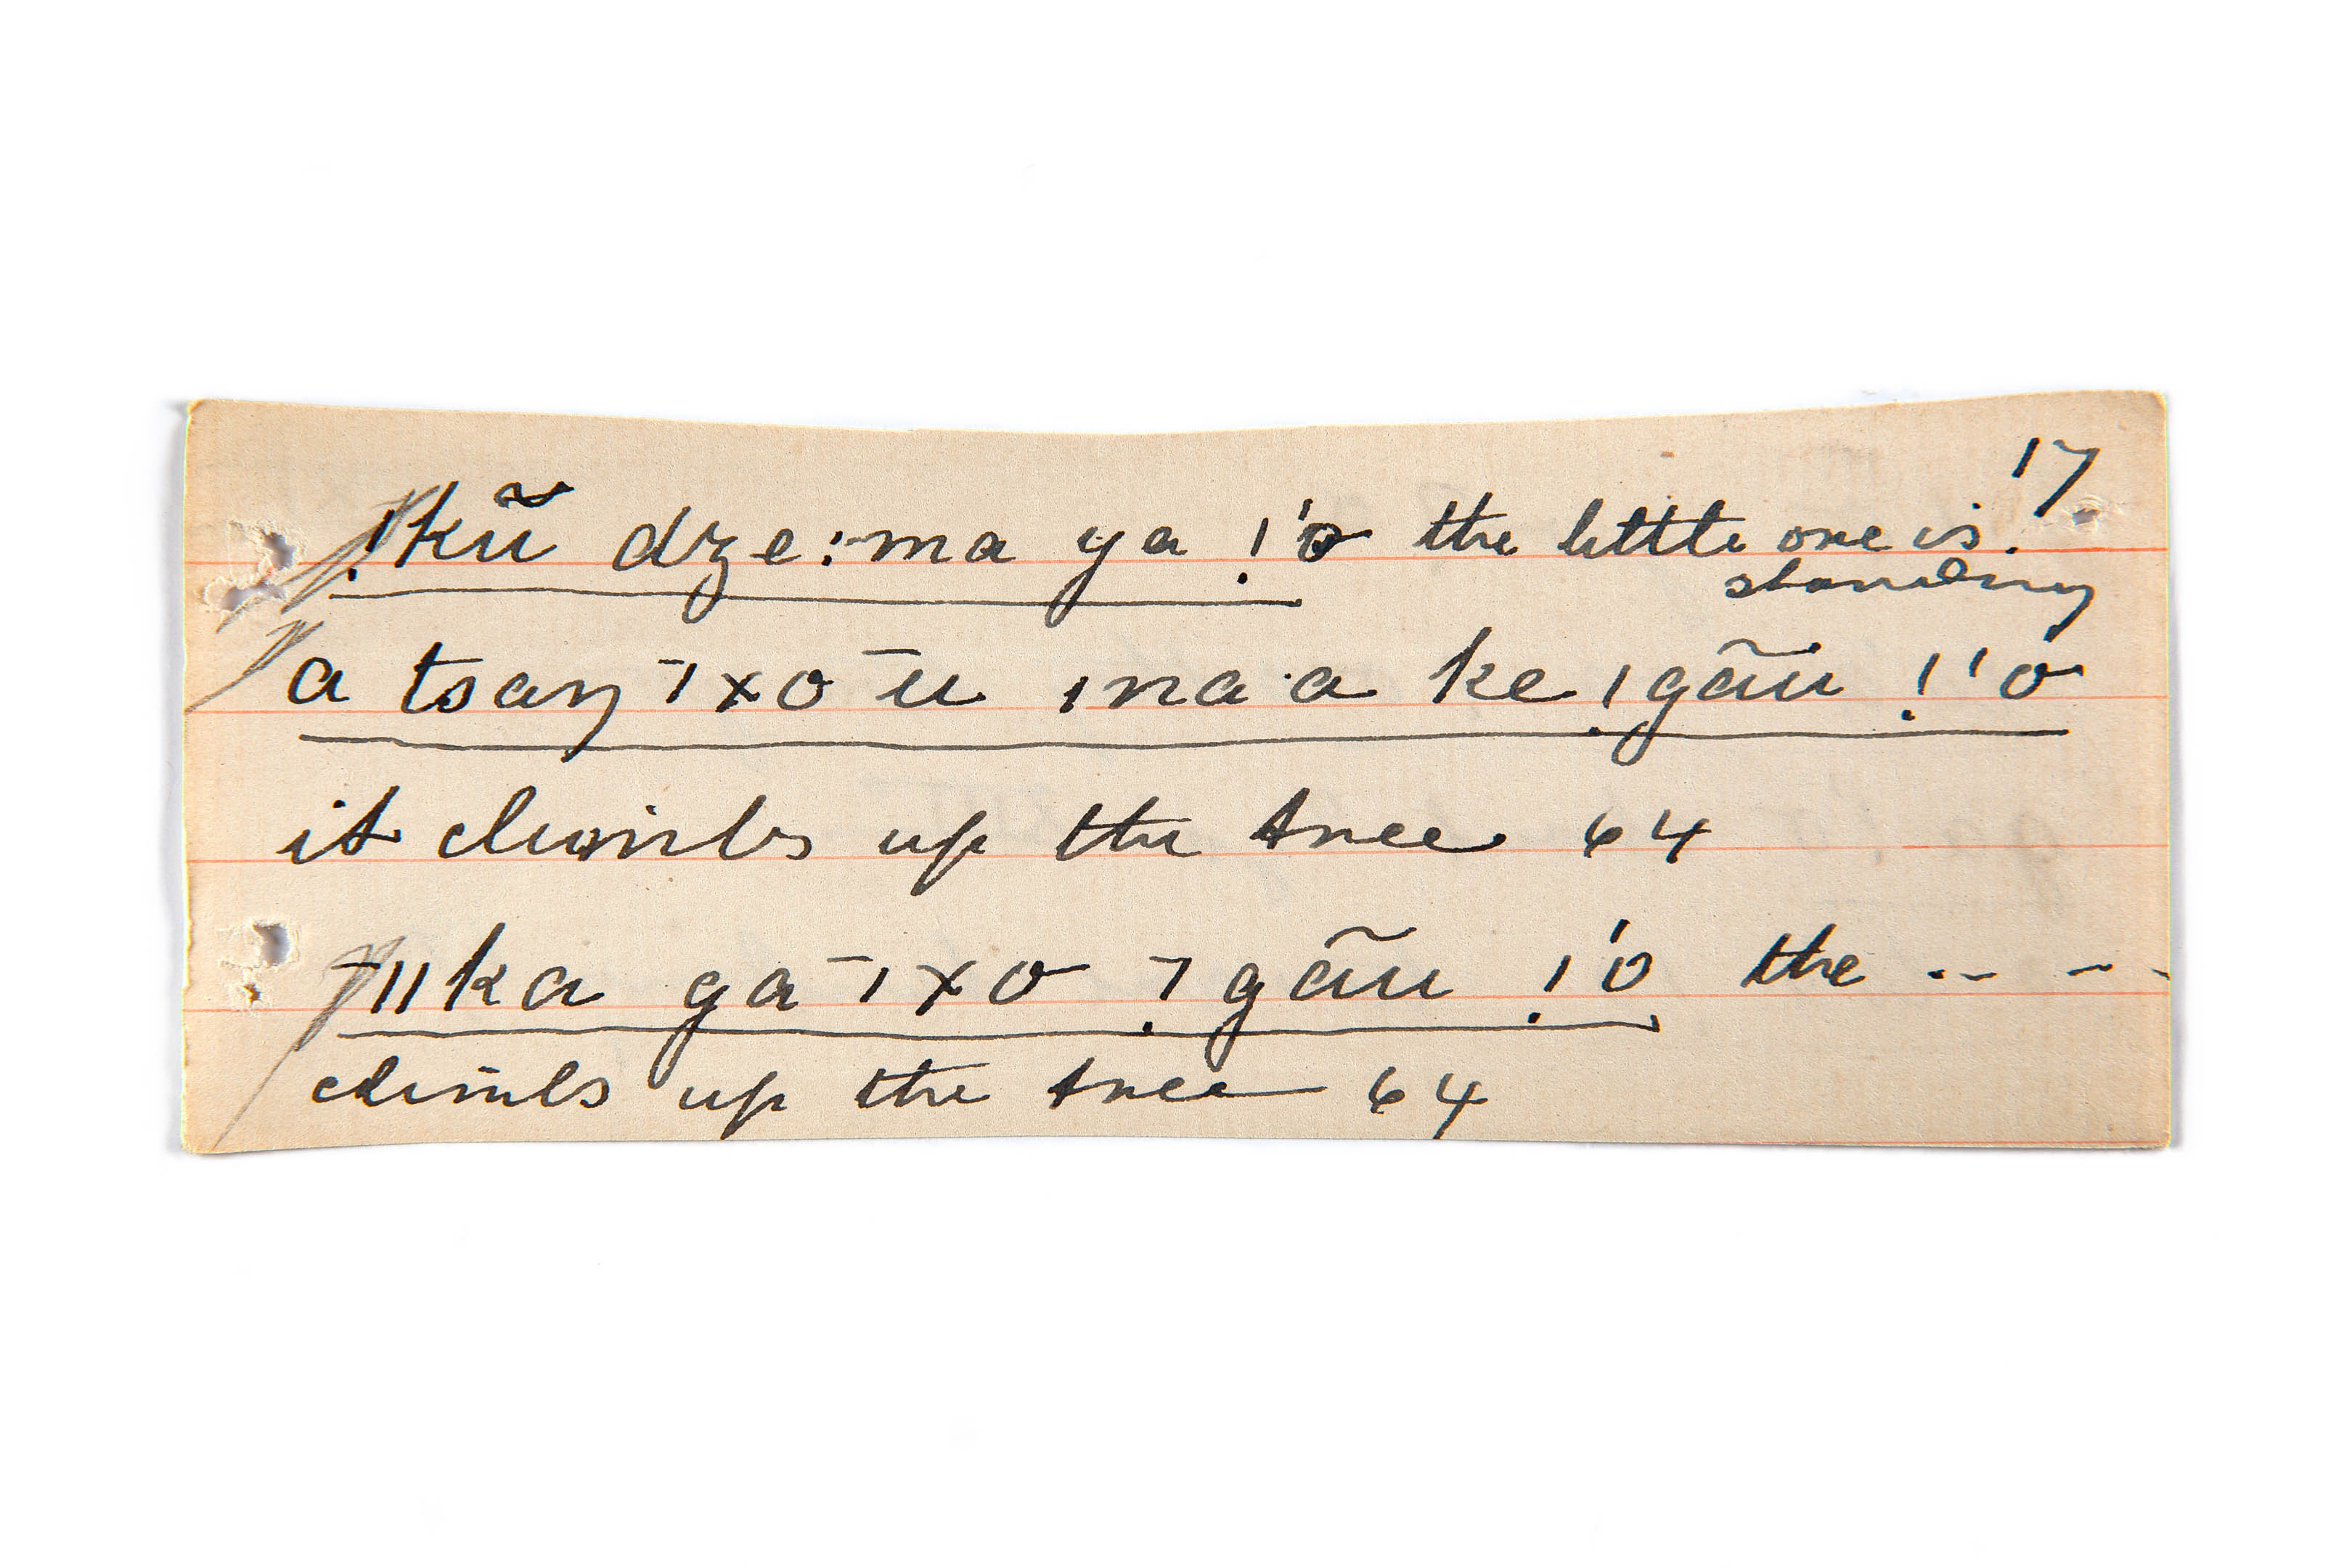 17
!kũ dze:ma ya !'o the little one is.
standing
a tsaŋ ˉ|xo ˉu |na·a ke !gãũ !'o
it climbs up the tree 64
ˉ||ka ga ˉ|xo ˉ!gãũ !'o the -- --
climbs up the tree 64